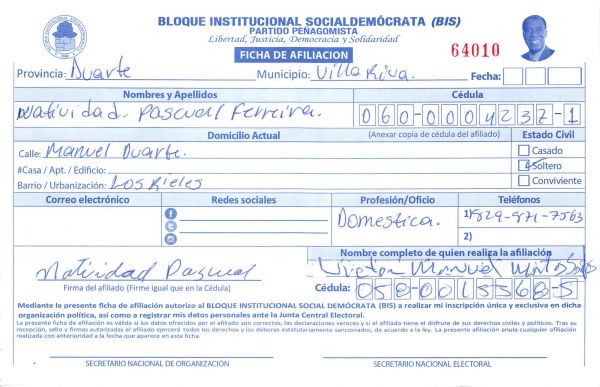 BLOQUE INSTITUCIONAL SOCIALDEMÓCRATA (BIS)
PARTIDO PEÑAGOMISTA
Libertad, Justicia, Democracia y Solidaridad
FICHA DE AFILIACION
64010
Provincia: Duarte Municipio: Villa Riva. Fecha:
Nombres y Apellidos Cédula
Natividad. Pascual Ferreira. 060-0004237-1
Domicilio Actual (Anexar copia de cédula del afiliado) Estado Civil
Calle: Manuel Duarte. Casado
#Casa / Apt. / Edificio: Soltero
Barrio / Urbanización: Los Rieles Conviviente
Correo electrónico Redes sociales Profesión/Oficio Teléfonos
Domestica. 1) 829-871-7563
2)
Nombre completo de quien realiza la afiliación
Natividad Pascual Victor Manuel
Firma del afiliado (Firme igual que en la Cédula) Cédula: 058-0015568-5
Mediante la presente ficha de afiliación autorizo al BLOQUE INSTITUCIONAL SOCIAL DEMÓCRATA (BIS) a realizar mi inscripción única y exclusiva en dicha
organización política, así como a registrar mis datos personales ante la Junta Central Electoral.
La presente ficha de afiliación es válida si los datos ofrecidos por el afiliado son correctos, las declaraciones veraces y si el afiliado tiene el disfrute de sus derechos civiles y políticos. Tras su
recepción, sello y firmas autorizadas el afiliado ejercerá todos los derechos y los deberes estatutariamente sancionados, de acuerdo a la ley. La presente afiliación anula cualquier afiliación
realizada con anterioridad a la fecha que aparece en esta ficha.
SECRETARIO NACIONAL DE ORGANIZACIÓN SECRETARIO NACIONAL ELECTORAL